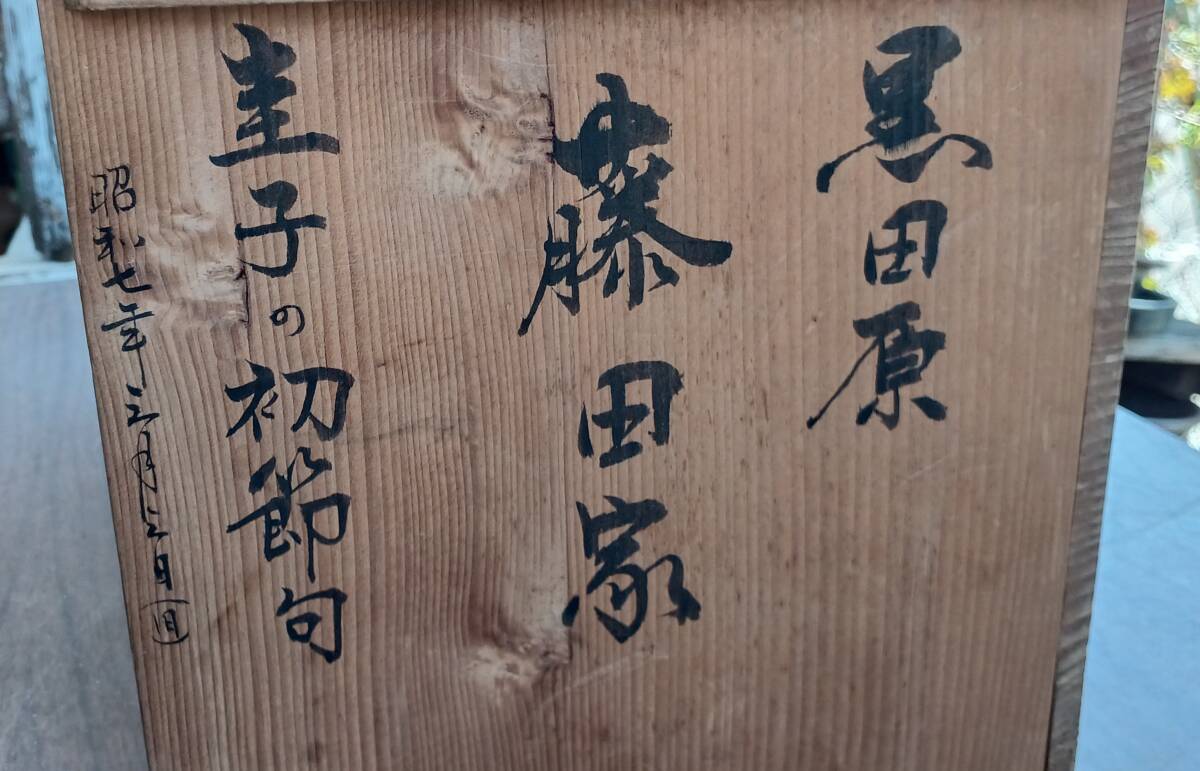 黒田原
藤田家
圭子の初節句
昭和七年三月三日(日)